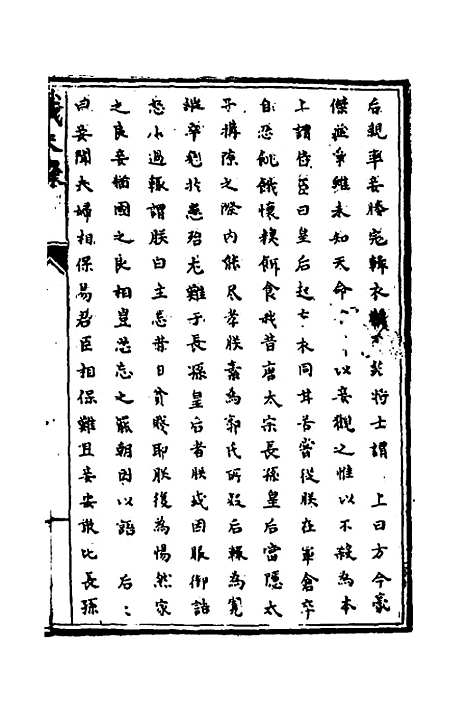 后親率妾媵完緝衣鞋木於將士謂　上曰方今豪
傑並爭雖未知天命　　以妾觀之惟以不殺為本
上謂侍臣曰皇后起士木同甘苦嘗從朕在軍倉卒
自忍飢餓懷糗餌食我昔唐太宗長孫皇后當隱太
子搆隙之際內能尽孝朕素為郭氏所疑后輒為寛
觧卒免於患殆尤難于長孫皇后者朕或因服御詰
怒小過輒謂朕曰主忘昔日貧賤耶朕復為惕然家
之良妻猶國之良相豈忍忘之罷朝因以語　后〻
曰妾聞夫婦相保易君臣相保難且妾安敢比長孫